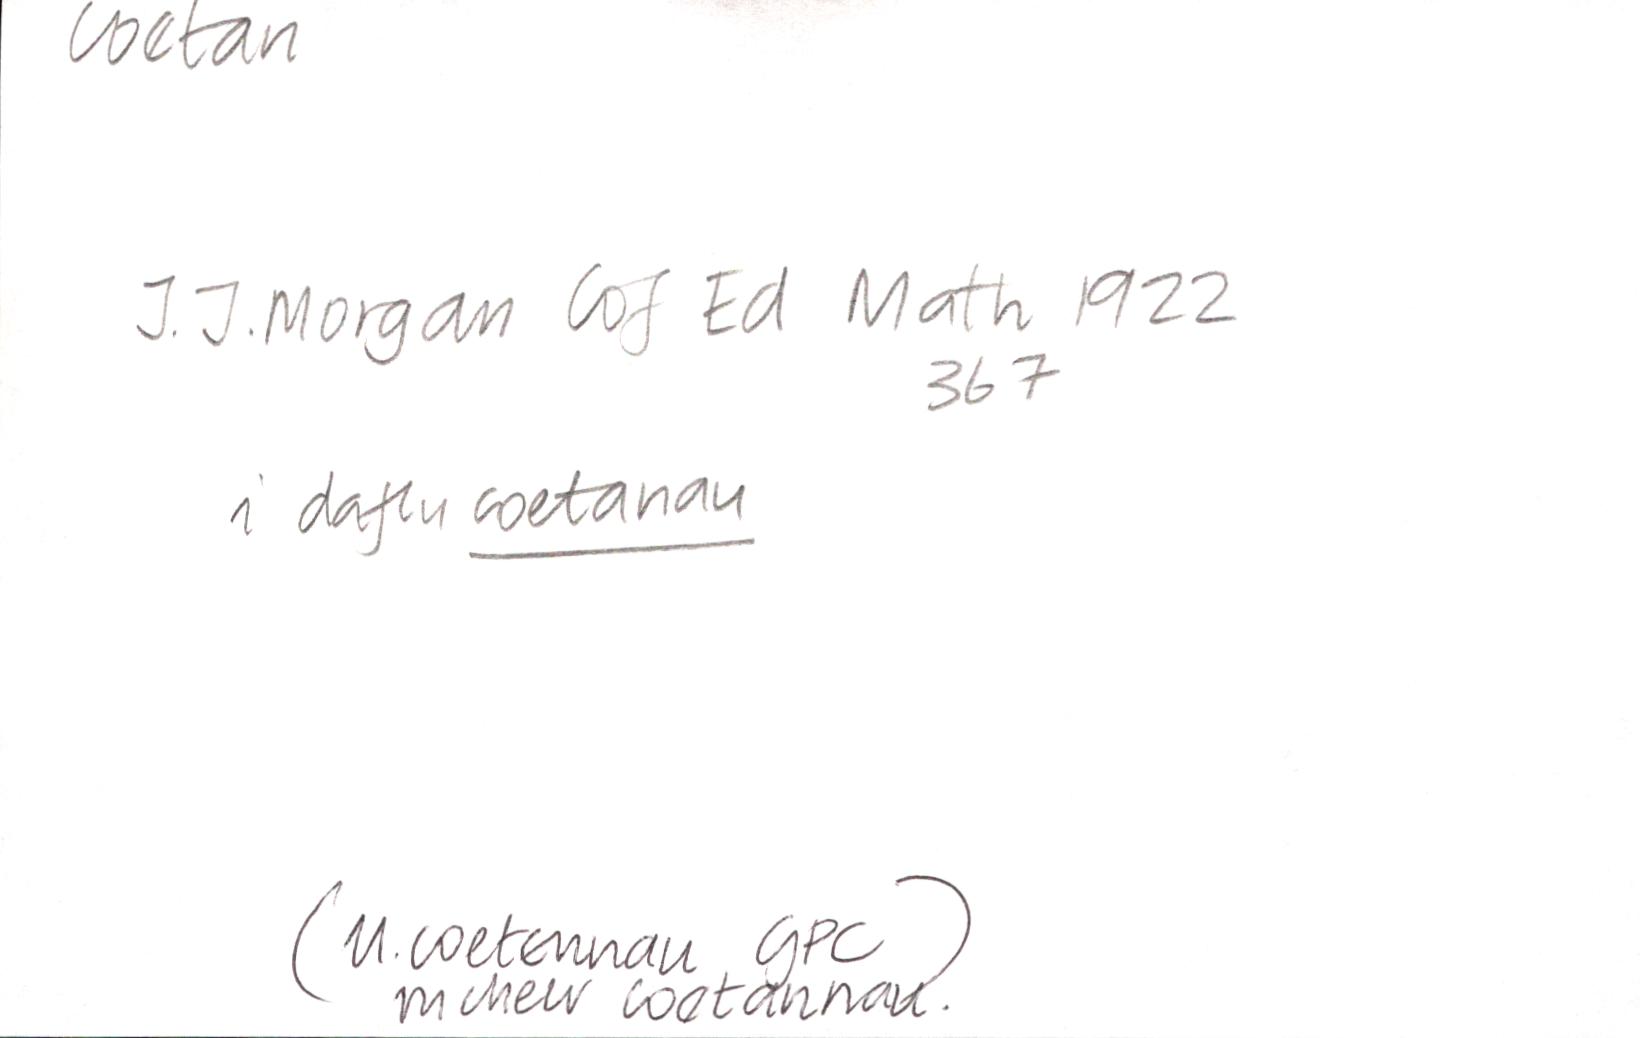 Coetan
J.J. Morgan Cof Ed Math 1922
367
i daflu coetanau
(ll. coetennau GPC)
mchew coetannau.